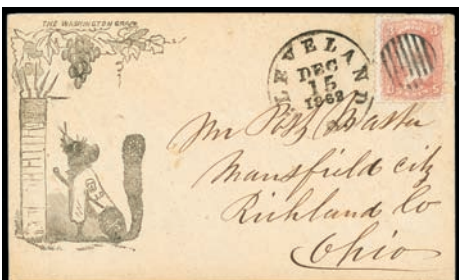 THE WASHINGTON GRAPE
CLEVELAND
DEC
15
1862
Mr Post Master
Mansfield city
Richland Co
Ohio